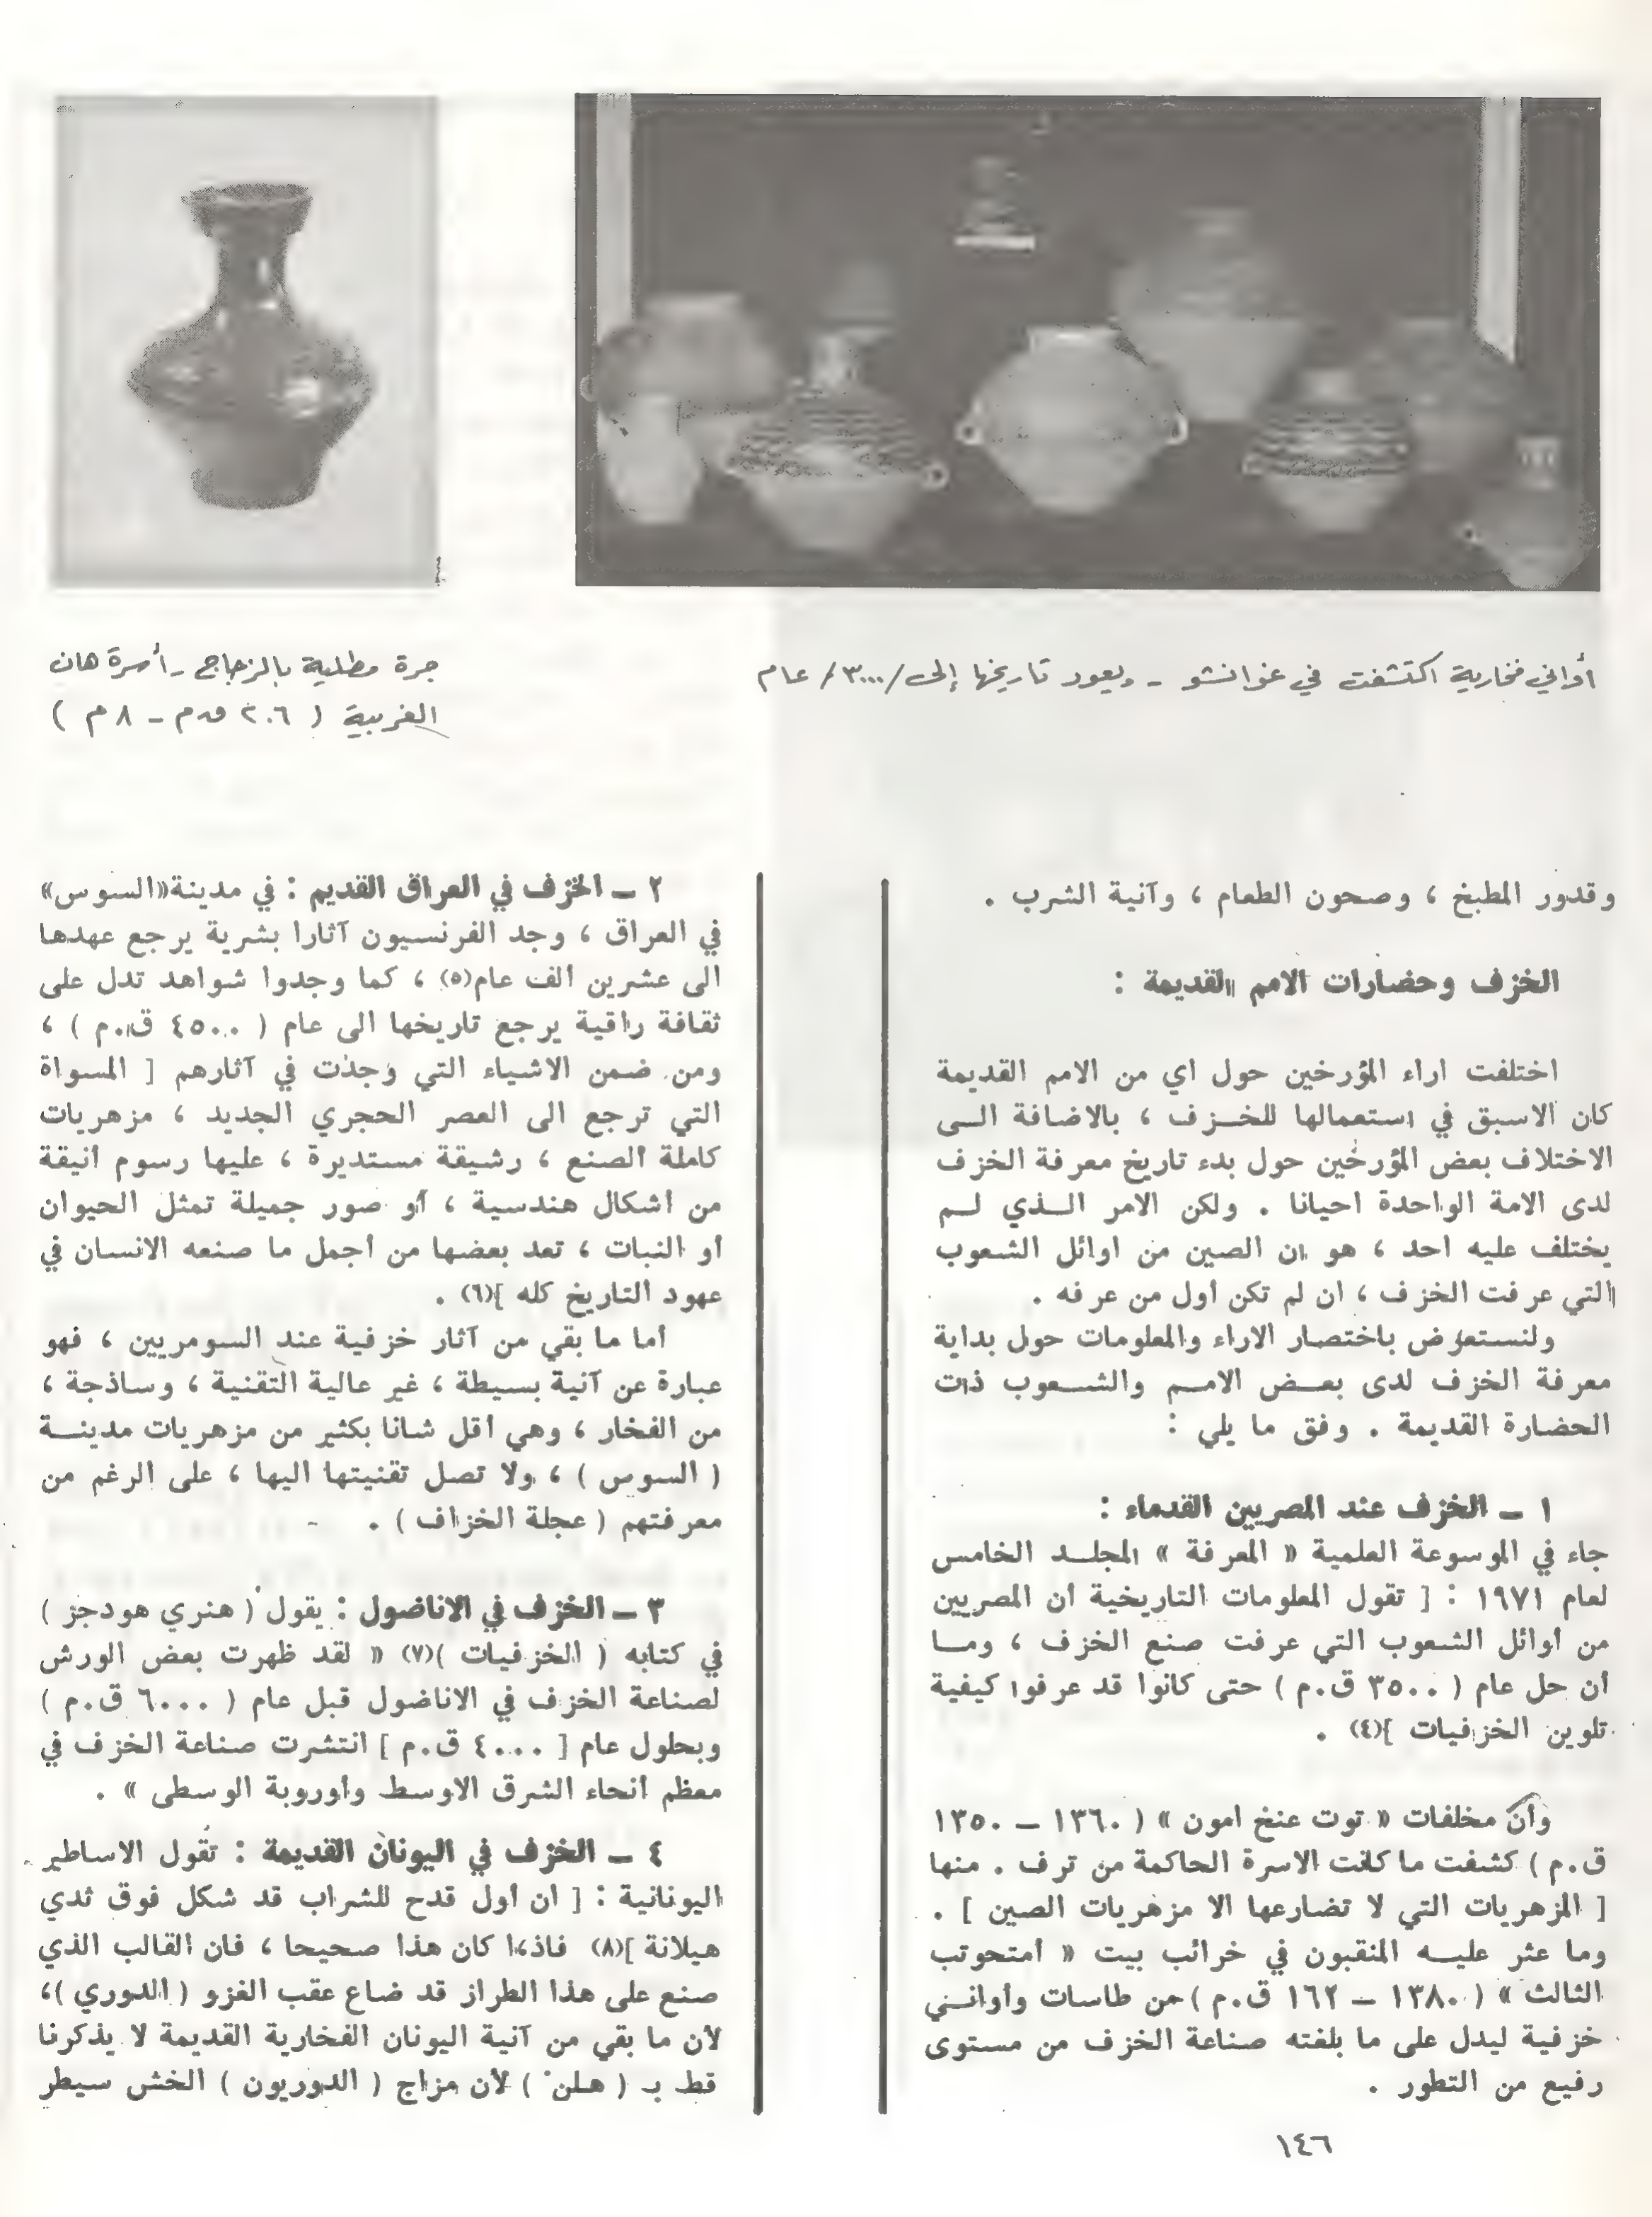 أواني فخارية اكتشفت في غوانشو - ويعود تاريخها إلى /٣٠٠٠/ عام
جرة مطلية بالزجاج - أسرة هان
الغربية ( ٢٠٦ ق.م - ٨ م )
وقدور المطبخ ، وصحون الطعام ، وآنية الشرب .
الخزف وحضارات الامم القديمة :
اختلفت اراء المؤرخين حول اي من الامم القديمة
كان الاسبق في استعمالها للخزف ، بالاضافة الى
الاختلاف بعض المؤرخين حول بدء تاريخ معرفة الخزف
لدى الامة الواحدة احيانا . ولكن الامر الذي لم
يختلف عليه احد ، هو ان الصين من اوائل الشعوب
التي عرفت الخزف ، ان لم تكن أول من عرفه .
ولنستعرض باختصار الاراء والمعلومات حول بداية
معرفة الخزف لدى بعض الامم والشعوب ذات
الحضارة القديمة . وفق ما يلي :
١ - الخزف عند المصريين القدماء :
جاء في الموسوعة العلمية « المعرفة » المجلد الخامس
لعام ١٩٧١ : [ تقول المعلومات التاريخية أن المصريين
من أوائل الشعوب التي عرفت صنع الخزف ، وما
أن حل عام ( ٣٥٠٠ ق.م ) حتى كانوا قد عرفوا كيفية
تلوين الخزفيات ](٤) .
وأن مخلفات « توت عنخ امون » ( ١٣٦٠ - ١٣٥٠
ق.م ) كشفت ما كانت الاسرة الحاكمة من ترف . منها
[ المزهريات التي لا تضارعها الا مزهريات الصين ] .
وما عثر عليه المنقبون في خرائب بيت « أمتحوتب
الثالث » ( ١٣٨٠ - ١٦٢ ق.م ) من طاسات وأواني
خزفية ليدل على ما بلغته صناعة الخزف من مستوى
رفيع من التطور .
٢ - الخزف في العراق القديم : في مدينة «السوس»
في العراق ، وجد الفرنسيون آثارا بشرية يرجع عهدها
الى عشرين ألف عام(٥) ، كما وجدوا شواهد تدل على
ثقافة راقية يرجع تاريخها الى عام ( ٤٥٠٠ ق.م ) ،
ومن ضمن الاشياء التي وجدت في آثارهم [ المسواة
التي ترجع الى العصر الحجري الجديد ، مزهريات
كاملة الصنع ، رشيقة مستديرة ، عليها رسوم أنيقة
من أشكال هندسية ، أو صور جميلة تمثل الحيوان
أو النبات ، تعد بعضها من أجمل ما صنعه الانسان في
عهود التاريخ كله ](٦) .
أما ما بقي من آثار خزفية عند السومريين ، فهو
عبارة عن آنية بسيطة ، غير عالية التقنية ، وساذجة ،
من الفخار ، وهي أقل شانا بكثير من مزهريات مدينة
( السوس ) ، ولا تصل تقنيتها اليها ، على الرغم من
معرفتهم ( عجلة الخزاف ) .
٣ - الخزف في الاناضول : يقول ( هنري هودجز )
في كتابه ( الخزفيات )(٧) « لقد ظهرت بعض الورش
لصناعة الخزف في الاناضول قبل عام ( ٦٠٠٠ ق.م )
وبحلول عام [ ٤٠٠٠ ق.م ] انتشرت صناعة الخزف في
معظم أنحاء الشرق الاوسط وأوروبة الوسطى » .
٤ - الخزف في اليونان القديمة : تقول الاساطير
اليونانية : [ أن أول قدح للشراب قد شكل فوق ثدي
هيلانة ](٨) فاذا كان هذا صحيحا ، فان القالب الذي
صنع على هذا الطراز قد ضاع عقب الغزو ( الدوري )،
لأن ما بقي من آنية اليونان الفخارية القديمة لا يذكرنا
قط بـ ( هلن ) لأن مزاج ( الدوريون ) الخش سيطر
١٤٦